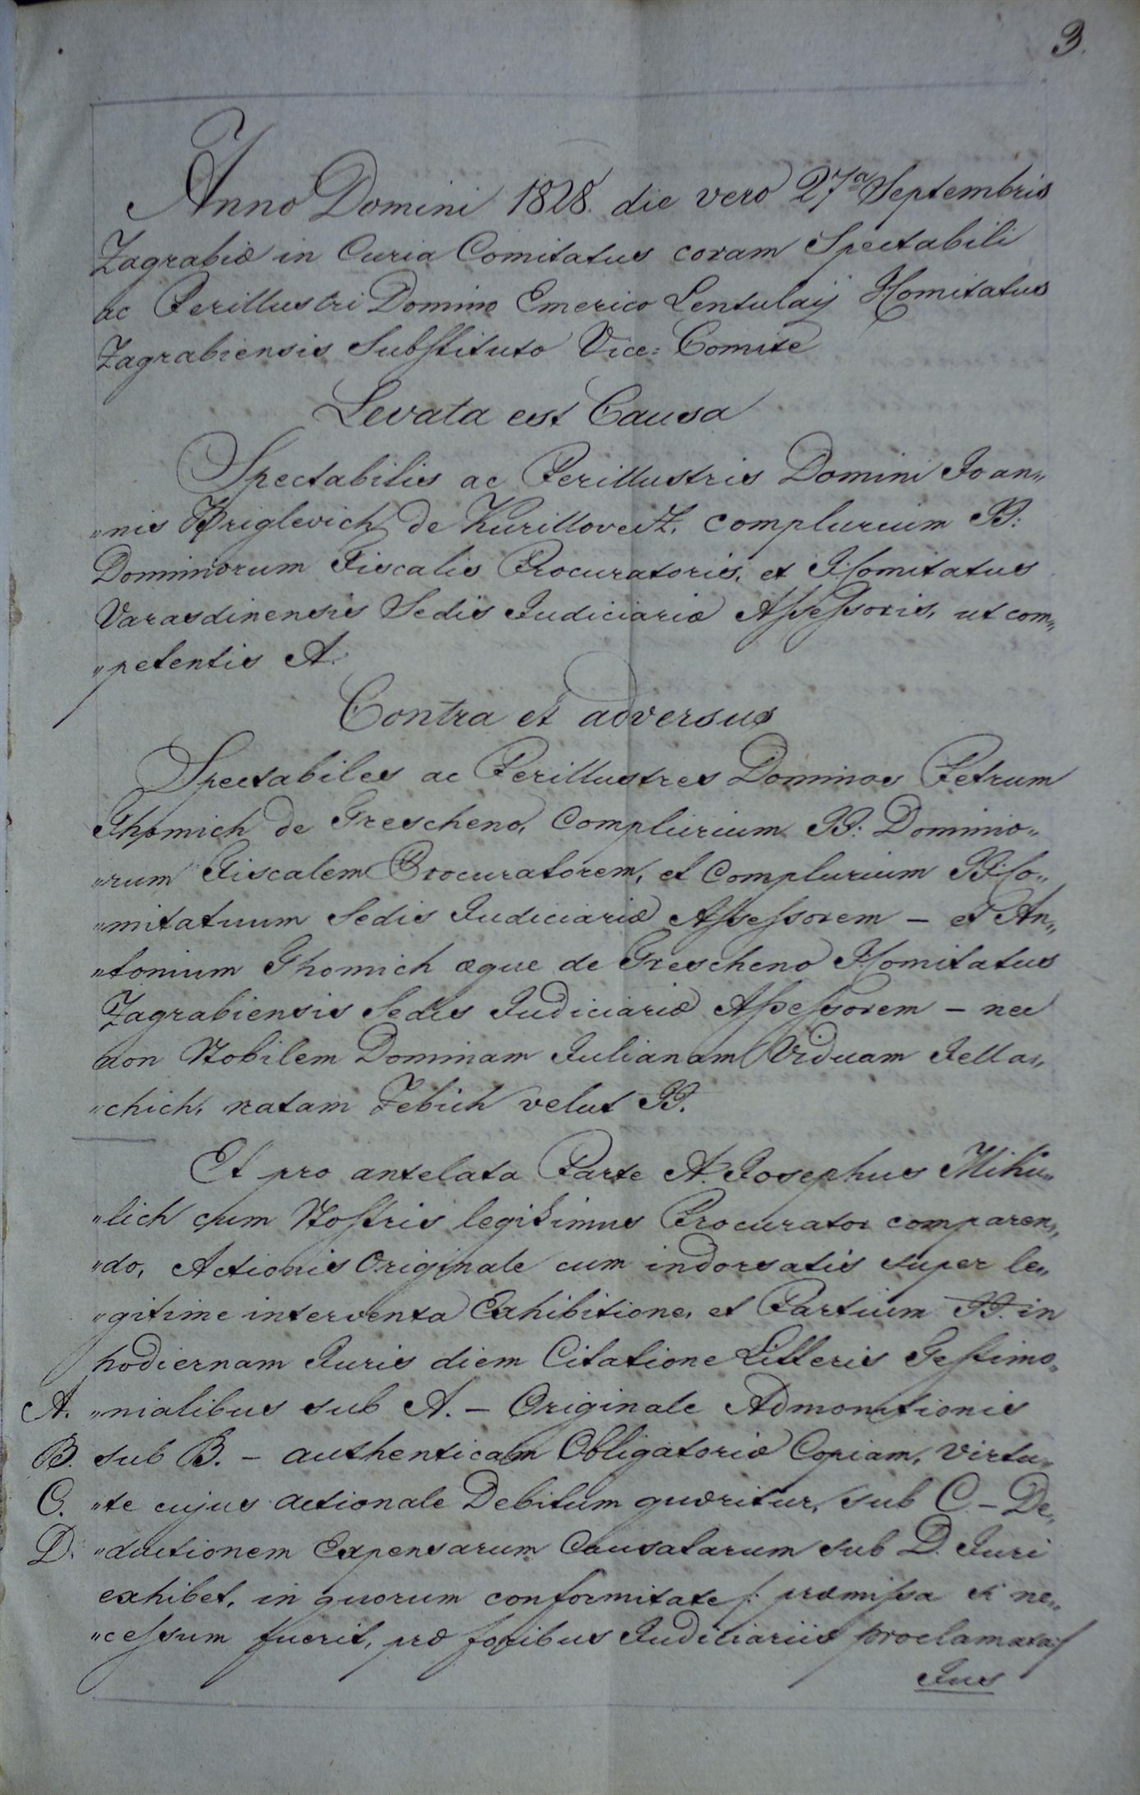 3.
Anno Domini 1828. die vero 27a Septembris
Zagrabiæ in Curia Comitatus coram Spectabili
ac Perillustri Domino Emerico Lentulaij I. Comitatus
Zagrabiensis Substituto Vice: Comite
Levata est Causa
Spectabilis ac Perillustris Domini Joan„
„nis Briglevich de Kurillovecz, complurium II:
Dominiorum Fiscalis Procuratoris, et I: Comitatus
Varasdinensis Sedis Judiciariæ Assessoris, ut com„
„petentis A:
Contra et adversus
Spectabiles ac Perillustres Dominos Petrum
Thomich de Trescheno, Complurium II: Dominio„
„rum Fiscalem Procuratorem, et Complurium II: Co„
„mitatuum Sedis Judiciariæ Assessorem – et An„
„tonium Thomich æque de Trescheno I. Comitatus
Zagrabiensis Sedis Judiciariæ Assessorem – nec
non Nobilem Dominam Julianam Viduam Jella„
„chich, natam Zebich velut II.
Et pro antelata Parte A. Josephus Miku„
„lich cum Nostris legitimus Procurator comparen„
„do, Actionis Originale cum indorsatis super le„
„gitime interventa Exhibitione, et Partium II. in
hodiernam Juris diem Citatione Litteris Testimo„
A. „nialibus sub A. – Originale Admonitionis
B. sub B. – authenticam Obligatoriæ Copiam, virtu„
C. „te cujus actionale Debitum quæritur, sub C – De„
D. „ductionem Expensarum Causatarum sub D. Juri
exhibet, in quorum conformitate /: præmissa si ne„
„cessum fuerit, præ foribus Judiciariis proclamata :/
Jus